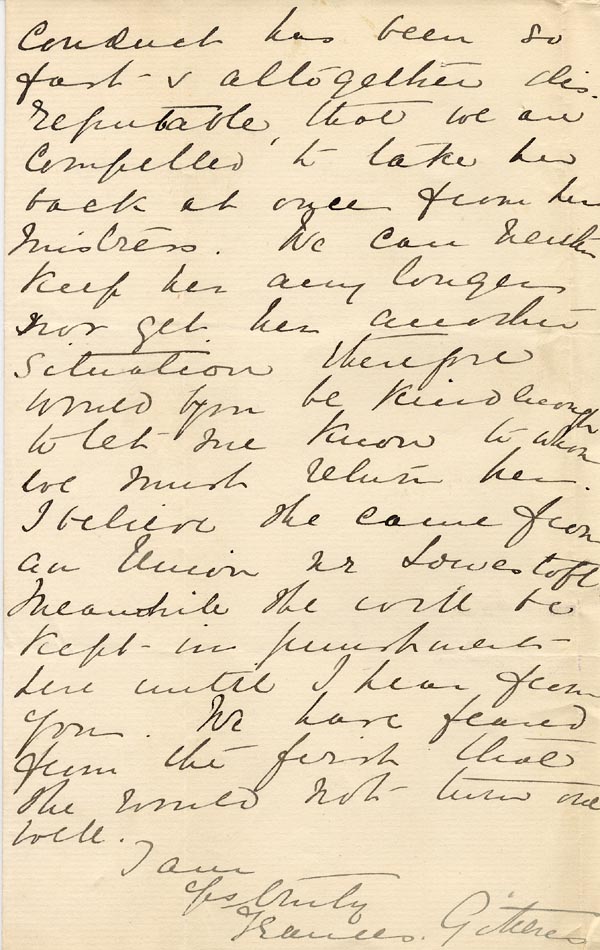 conduct has been so
fast & altogether dis-
reputable, that we are
compelled to take her
back at once from her
mistress. We can neither
keep her any longer
nor get her another
situation therefore
would you be kind enough
to let me know to whom
we must return her.
I believe she came from
an Union nr Lowestoft
Meanwhile she will be
kept in punishment
here until I hear from
you. We have feared
from the first that
she would not turn out
well.
I am
yrs truly
Frances.